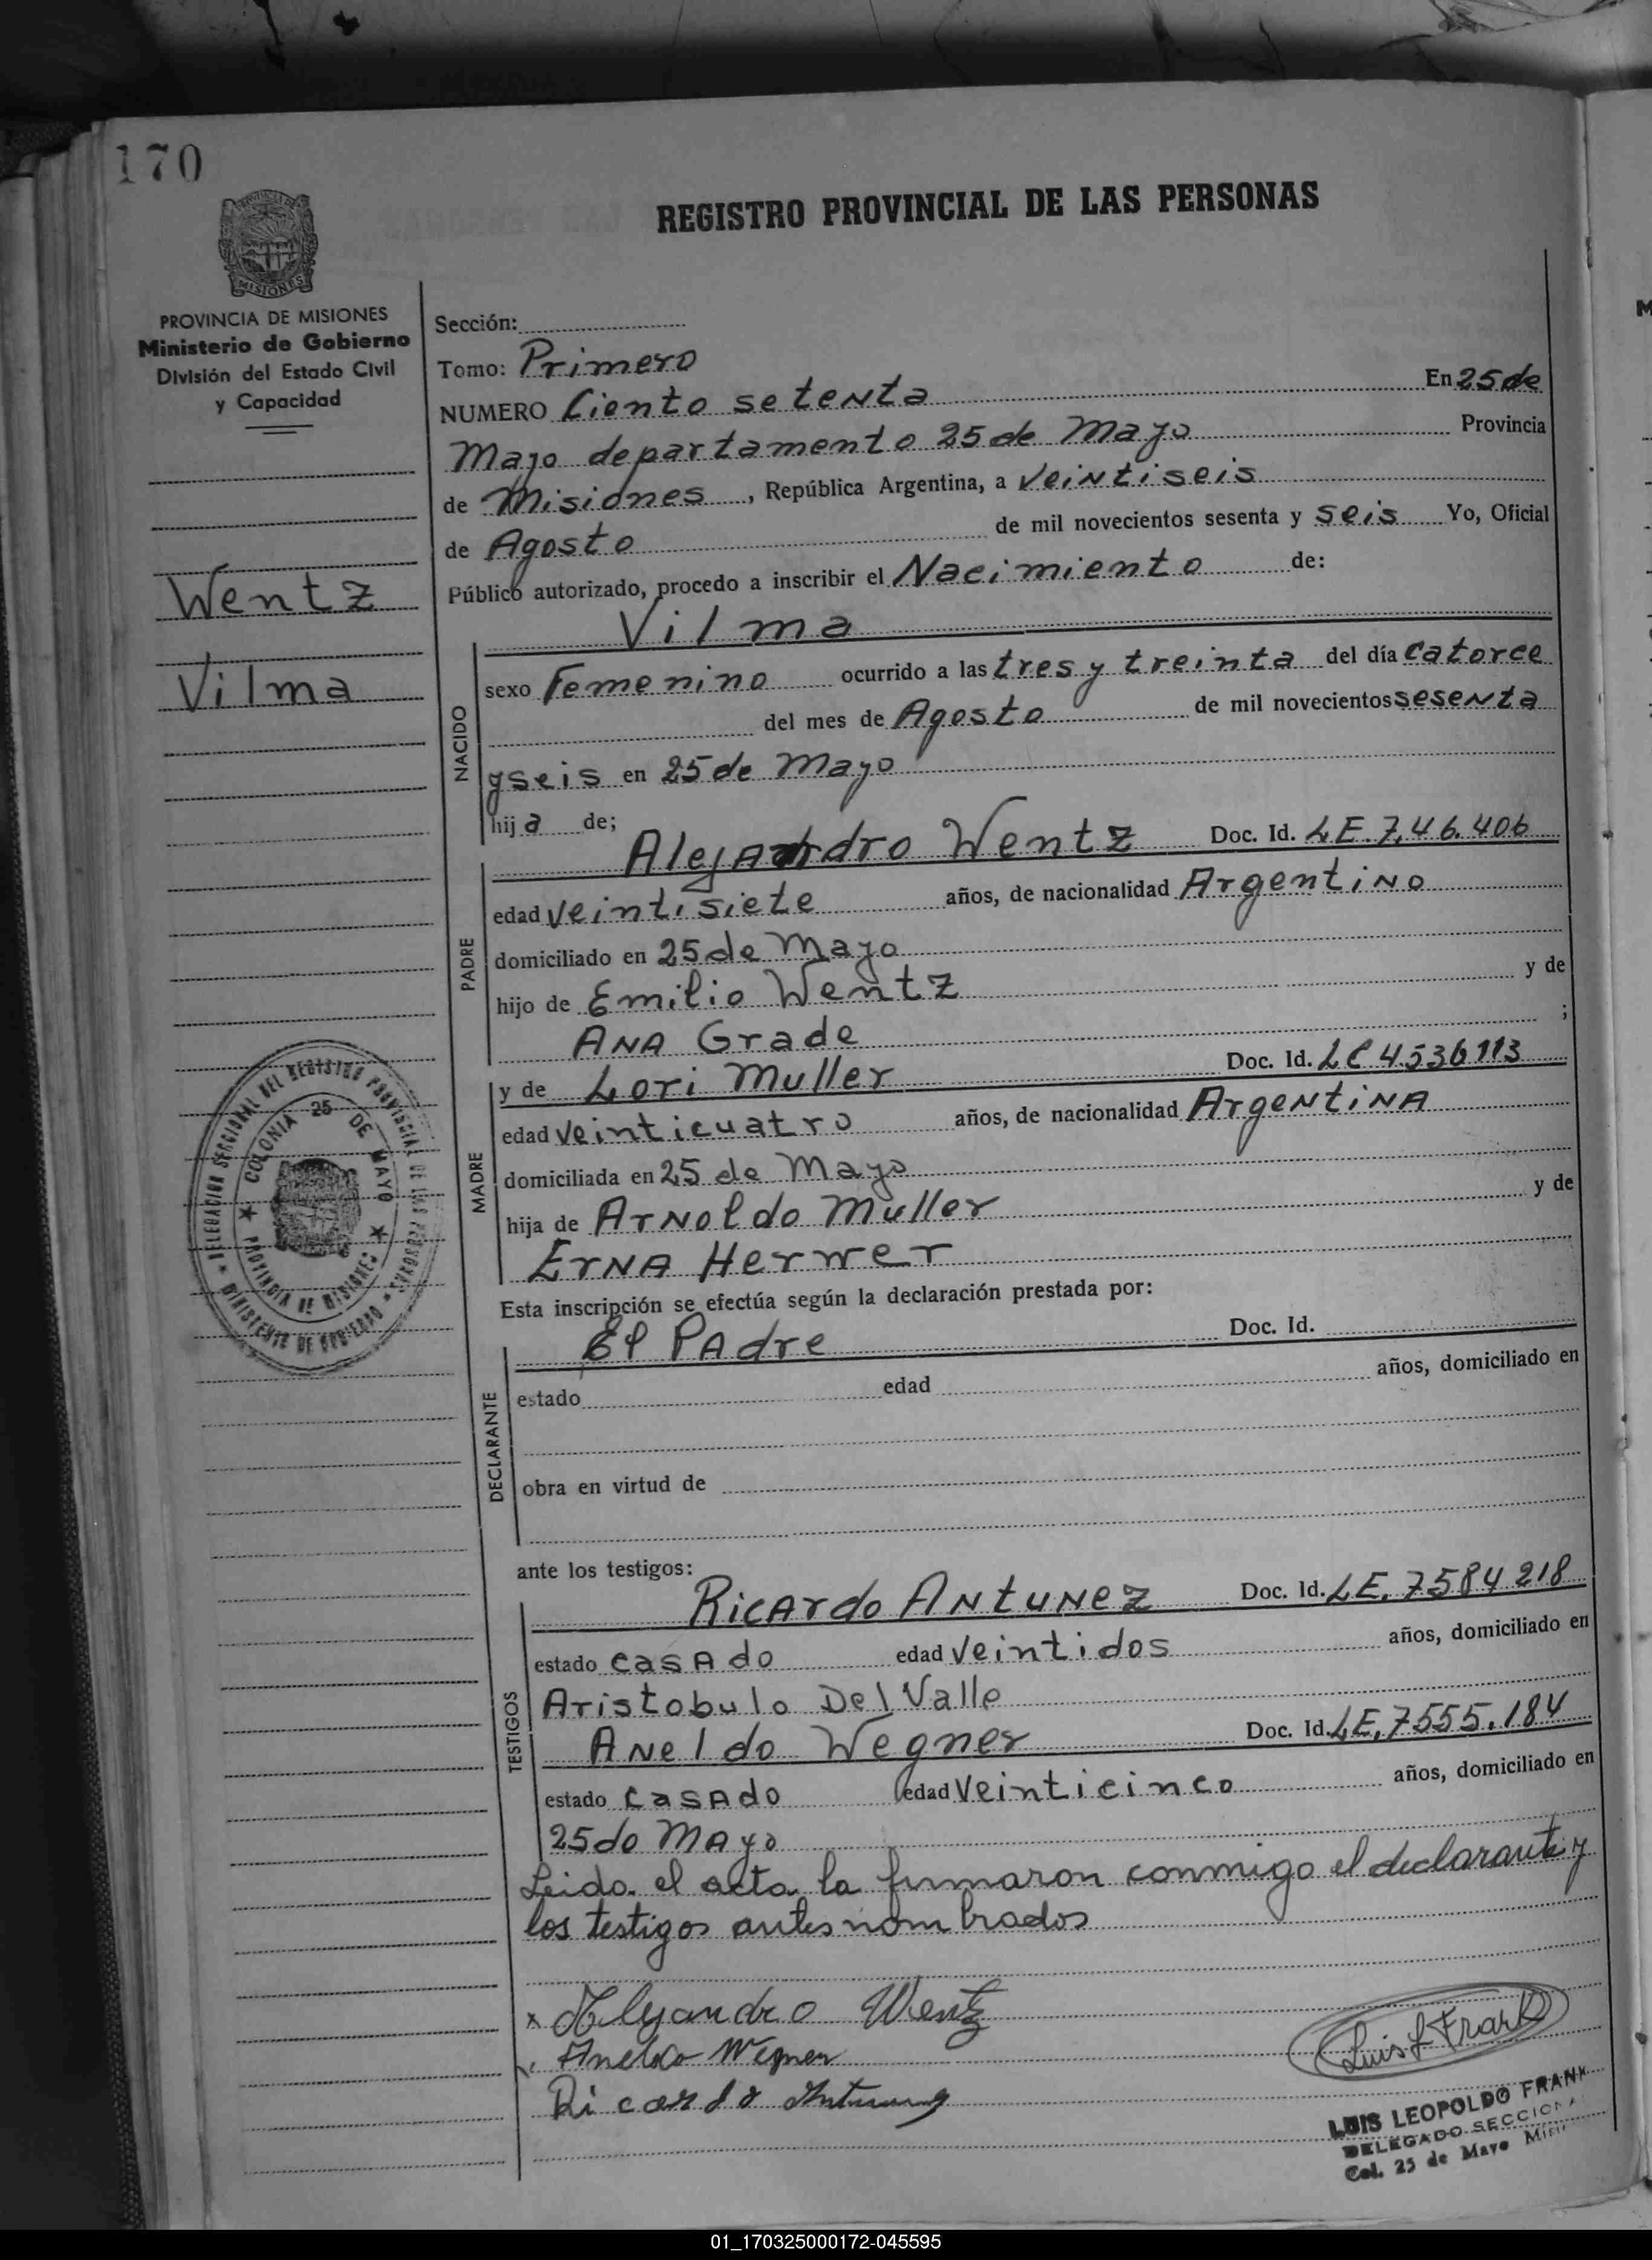 170
REGISTRO PROVINCIAL DE LAS PERSONAS
MISIONES
PROVINCIA DE MISIONES
Ministerio de Gobierno
División del Estado Civil
y Capacidad
Wentz
Vilma
Sección:
Tomo: Primero
NUMERO Ciento setenta En 25 de
Mayo departamento 25 de Mayo Provincia
de Misiones, República Argentina, a veintiseis
de Agosto de mil novecientos sesenta y seis Yo, Oficial
Público autorizado, procedo a inscribir el Nacimiento de:
Vilma
NACIDO
sexo Femenino ocurrido a las tres y treinta del día catorce
del mes de Agosto de mil novecientos sesenta
y seis en 25 de Mayo
hija de;
Alejandro Wentz Doc. Id. LE.7.46.406
PADRE
edad veintisiete años, de nacionalidad Argentino
domiciliado en 25 de Mayo
hijo de Emilio Wentz y de
Ana Grade ;
y de Lori Muller Doc. Id. LC 4.536113
MADRE
edad veinticuatro años, de nacionalidad Argentina
domiciliada en 25 de Mayo
hija de Arnoldo Muller y de
Erna Herwer
DELEGACION SECCIONAL DEL REGISTRO PROVINCIAL DE LAS PERSONAS
COLONIA 25 DE MAYO
PROVINCIA DE MISIONES
Esta inscripción se efectúa según la declaración prestada por:
El Padre Doc. Id.
DECLARANTE
estado edad años, domiciliado en
obra en virtud de
ante los testigos:
Ricardo Antunez Doc. Id. LE.7584218
TESTIGOS
estado casado edad veintidos años, domiciliado en
Aristobulo Del Valle
Aneldo Wegner Doc. Id. LE.7555.184
estado casado edad veinticinco años, domiciliado en
25 do Mayo
Leido el acta la firmaron conmigo el declarante y
los testigos antes nombrados
x Alejandro Wentz
Aneldo Wegner
Ricardo Antunez
Luis L Frank
LUIS LEOPOLDO FRANK
DELEGADO SECCIONA
Col. 25 de Mayo Misi
01_170325000172-045595